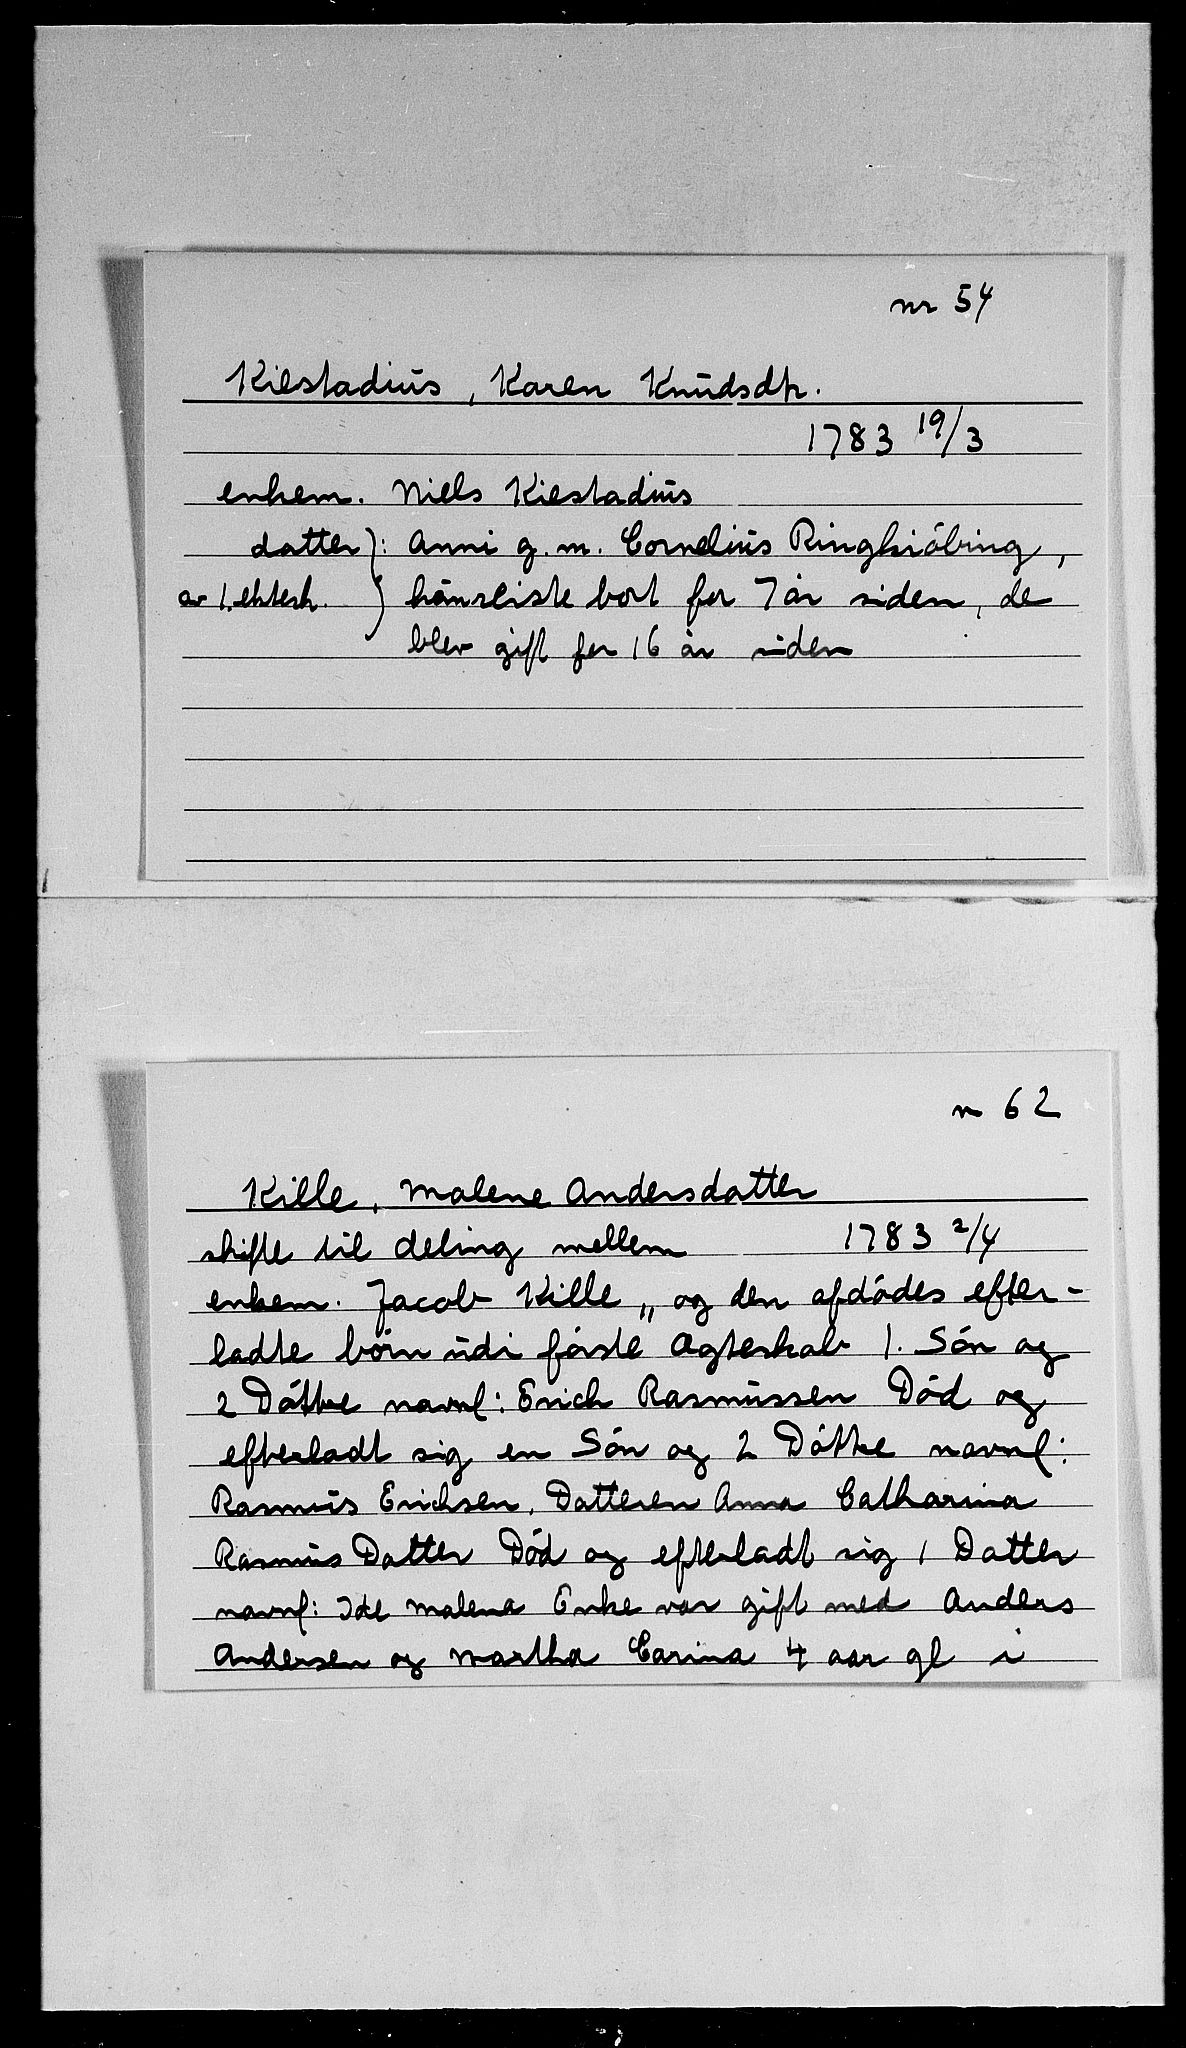 nr 54
Kiestadius, Karen Knudsdtr.
1783 19/3
enkem. Niels Kiestadius
datter): Anni g. m. Cornelius Ringkiöbing,
av 1. ektesk. ) bort for 7 år siden, de
blev gift for 16 år siden
nr 62
Kille, Malene Andersdatter
skifte til deling mellem 1783 2/4
enkem. Jacob Kille „ og den afdödes efter-
ladte börn udi förste Ægteskab 1. Sön og
2 Döttre navnl: Erich Rasmussen Död og
efterladt sig en Sön og 2 Döttre navnl:
Rasmus Erichsen, Datteren Anna Catharina
Rasmus Datter Död og efterladt sig 1 Datter
navnl: Ide Malena Enke var gift med Anders
Andersen og Martha Carina 4 aar gl i